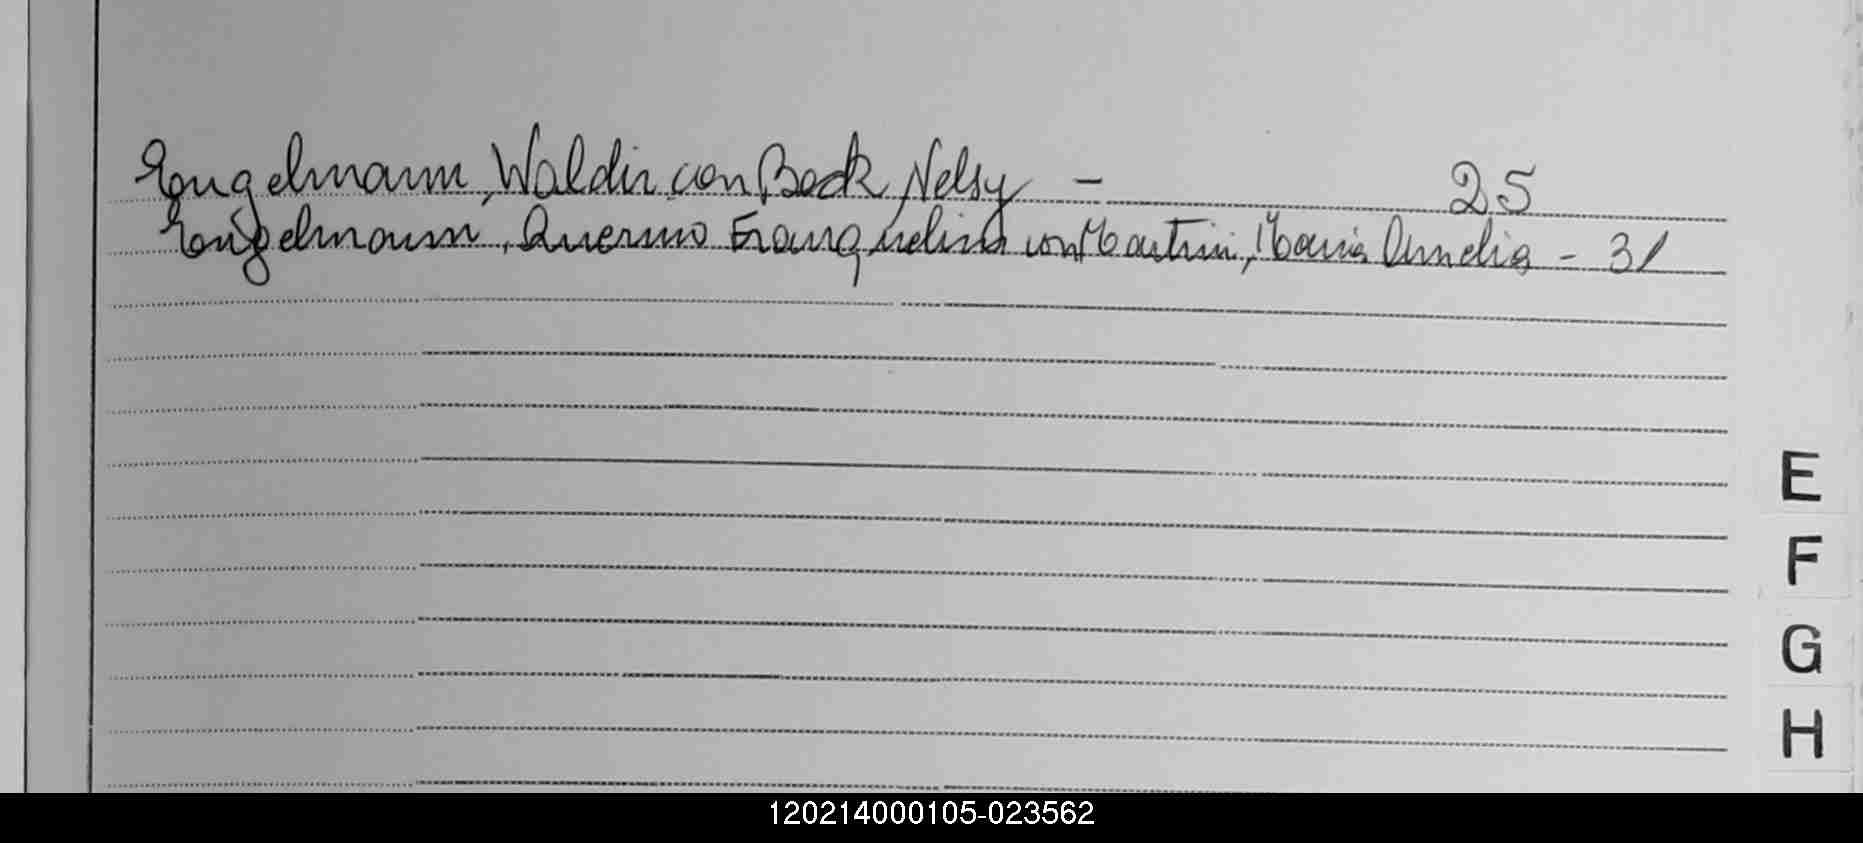 Engelmann, Waldir con Beck, Nelsy - 25
Engelmann, con Martini, Maria Amelia - 31
E
F
G
H
120214000105-023562